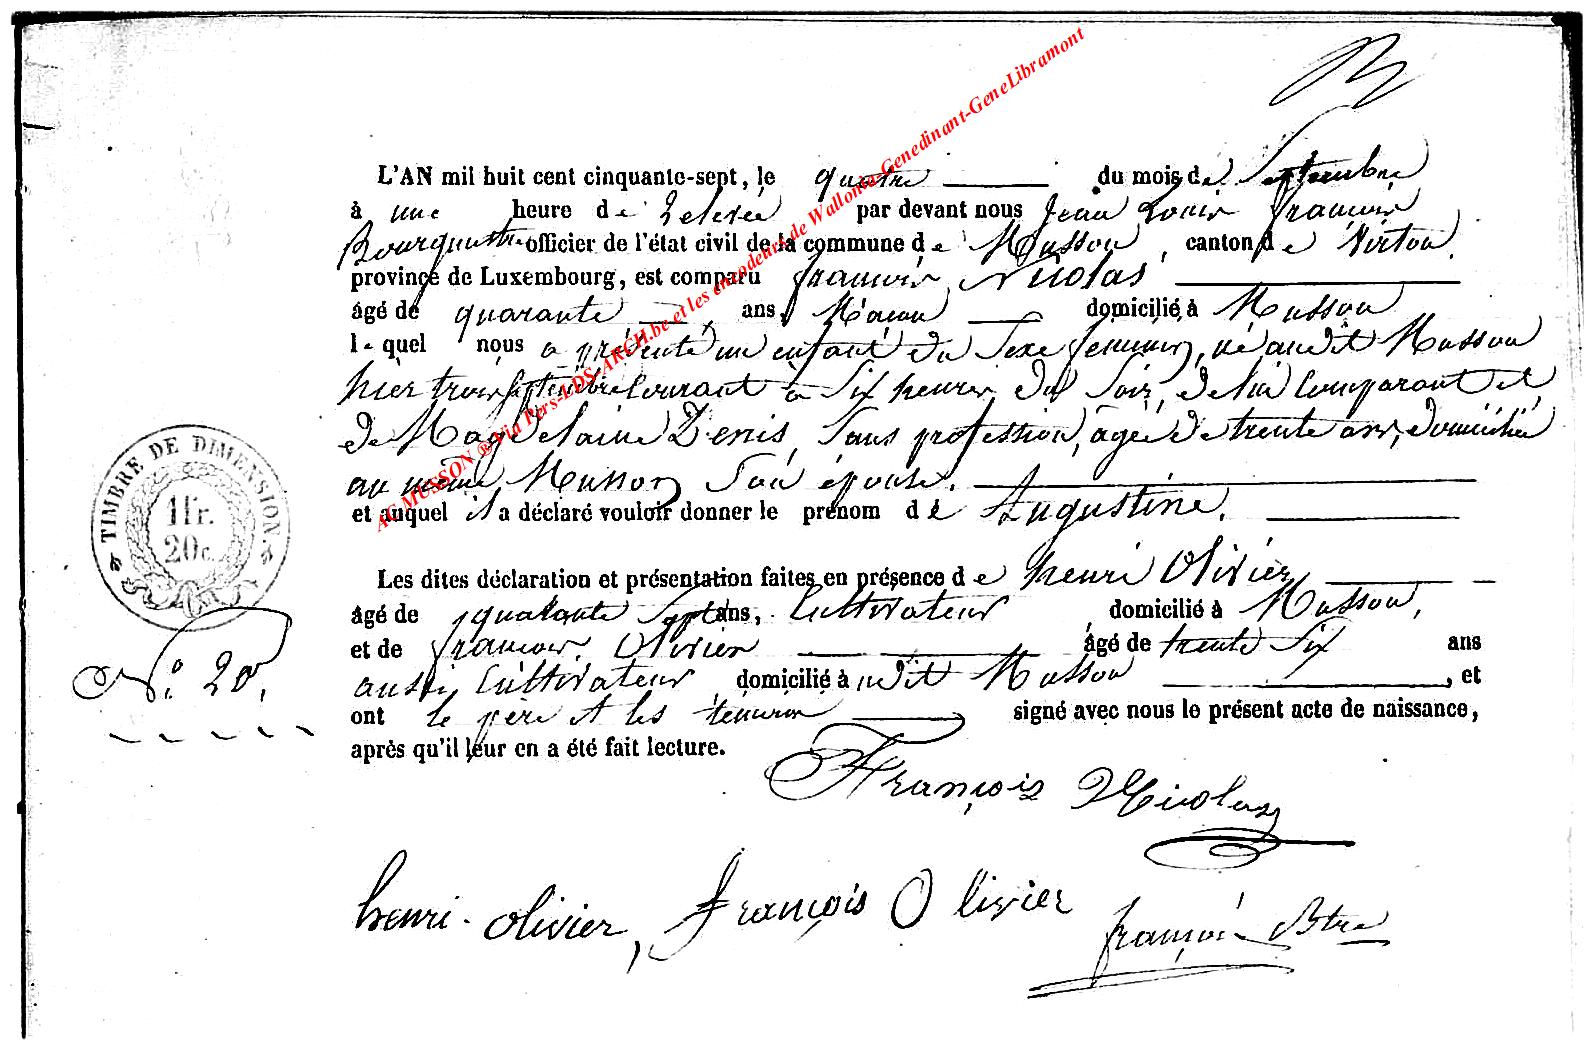 L'AN mil huit cent cinquante-sept, le quatre du mois de Septembre
à une heure de relevée par devant nous Jean Louis françois
officier de l'état civil de la commune de Musson, canton de Virton,
province de Luxembourg, est comparu françois Nicolas
âgé de quarante ans, Maçon domicilié à Musson
lequel nous a présenté un enfant du Sexe feminin, né audit Musson
hier trois Septembre Courant à Six heures du Soir, de lui Comparant et
de Magdelaine Denis, Sans profession, agée de trente ans, domiciliée
au même Musson Son épouse.
et auquel il a déclaré vouloir donner le prénom de Augustine.
Les dites déclaration et présentation faites en présence de henri Olivier
âgé de quarante Sept ans, Cultivateur domicilié à Musson,
et de françois Olivier âgé de trente Six ans
aussi Cultivateur domicilié à udit Musson, et
ont le père et les témoins signé avec nous le présent acte de naissance,
après qu'il leur en a été fait lecture.
François Nicolas
henri olivier, françois Olivier
françois Btre
TIMBRE DE DIMENSION.
1fr.
20c.
N.° 20.
AG MUSSON ® Via Pers-LDS-ARCH.be et les encodeurs de Wallonia-Genedinant-GeneLibramont